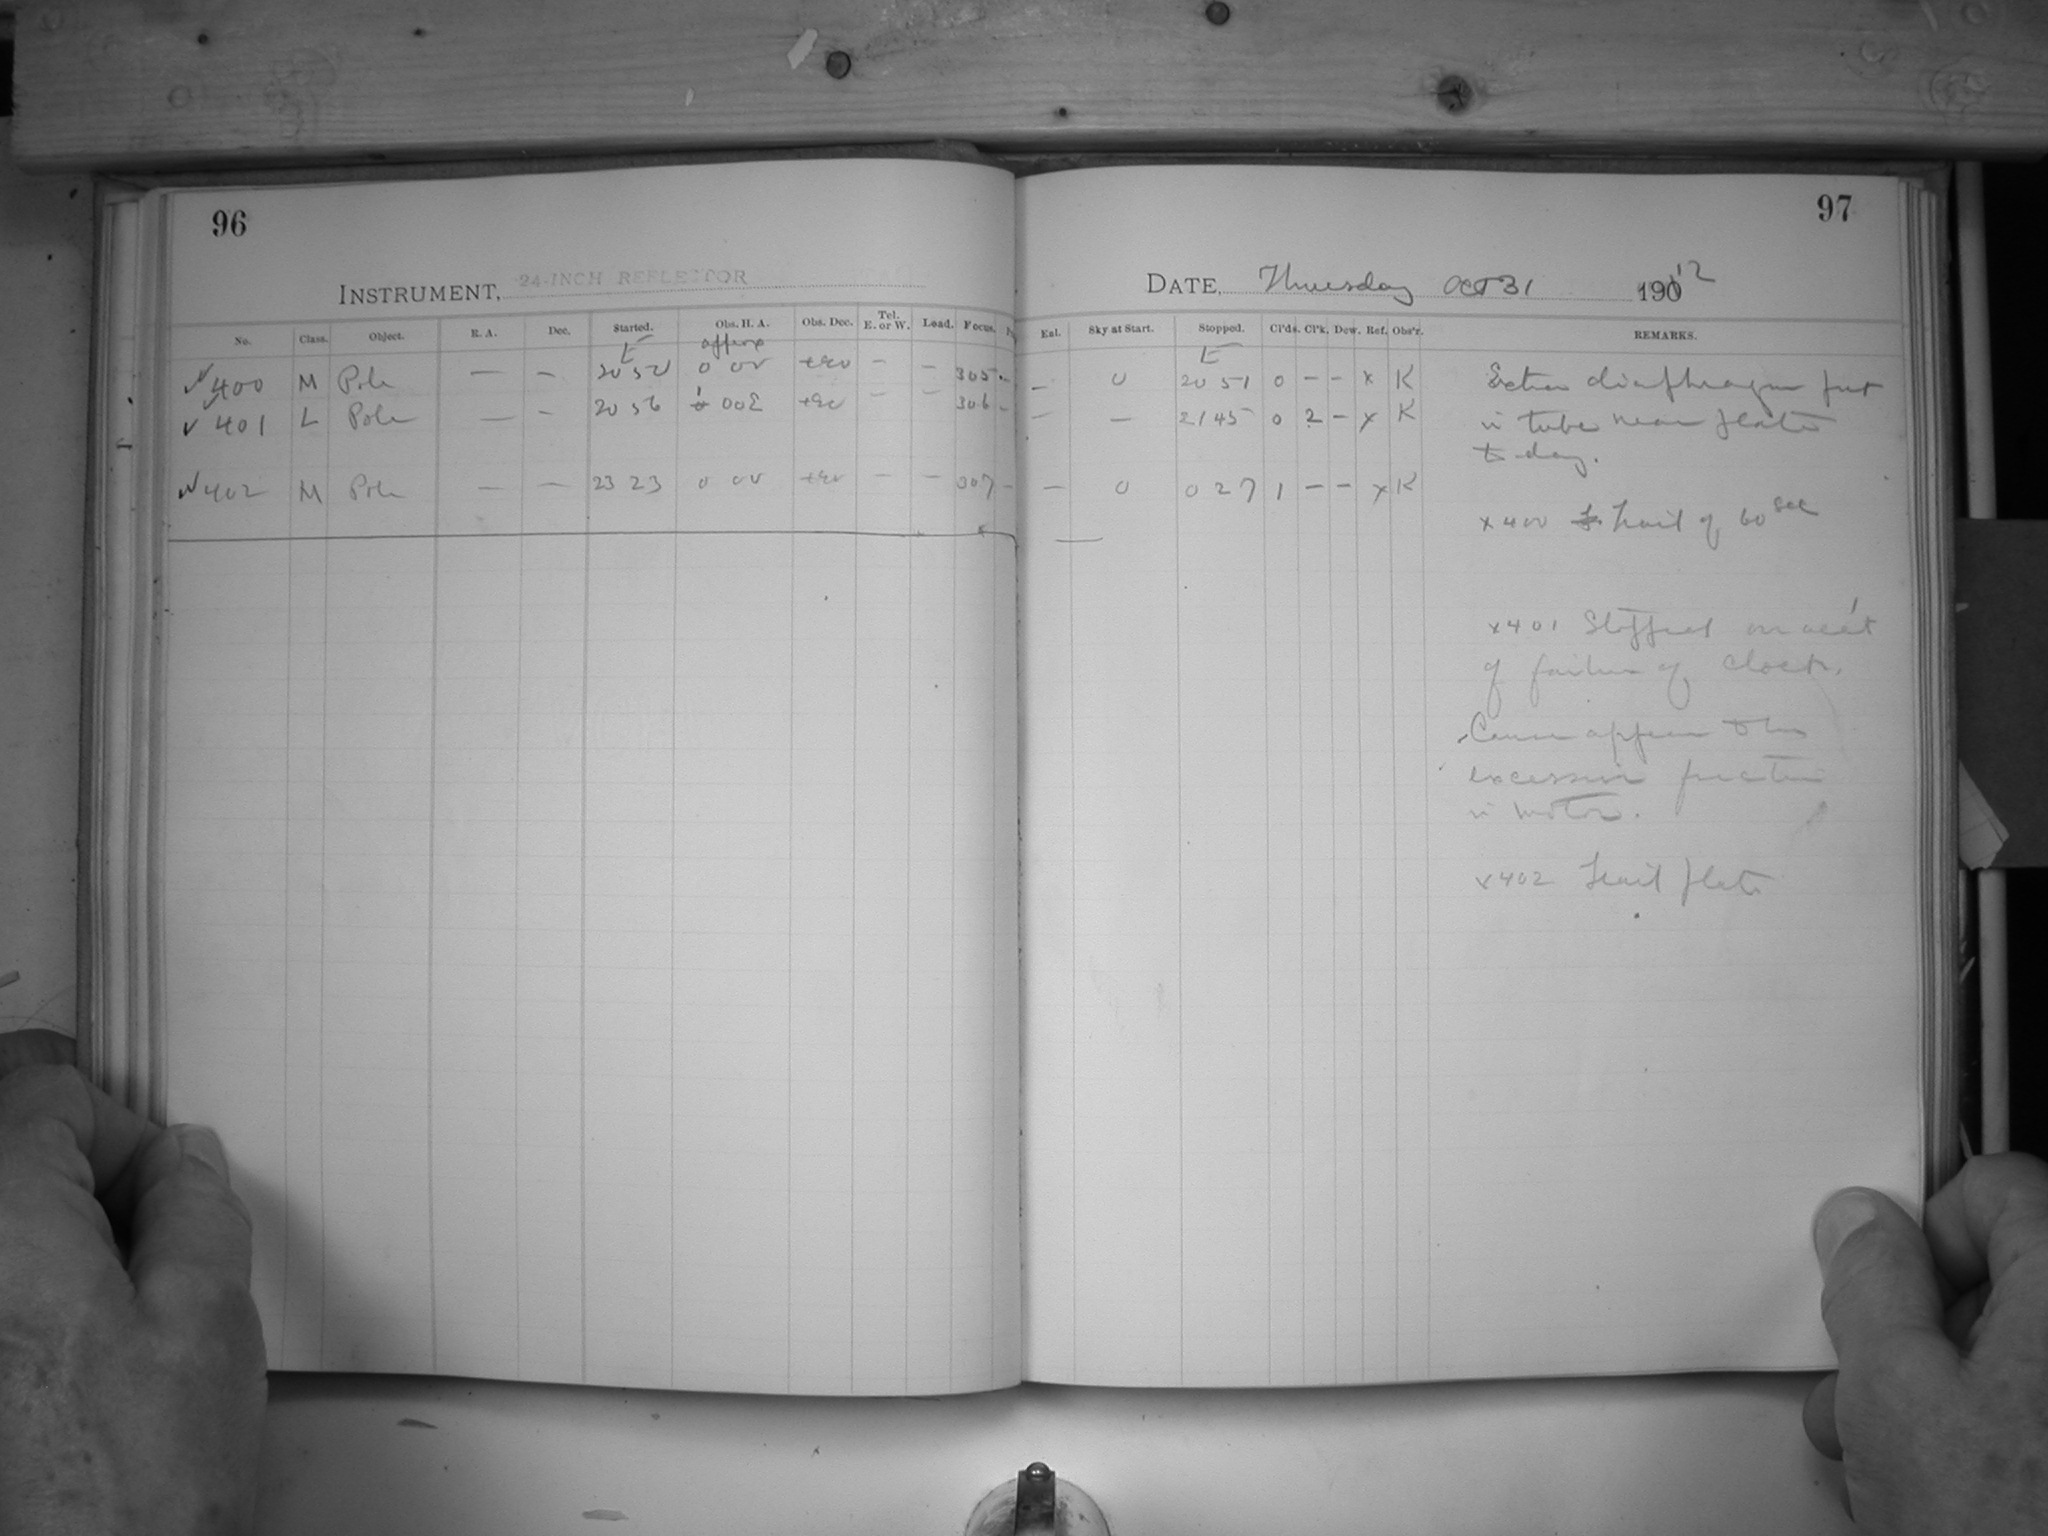 96
INSTRUMENT, 24-INCH REFLECTOR
No. Class. Object. R. A. Dec. Started. Obs. H. A. Obs. Dec. Tel. E. or W. Load. Focus.
E approx
400 M Pole — — 20 50 0 00 +90 — — 305 -
401 L Pole — — 20 56 1 00E +90 — — 306 -
402 M Pole — — 23 23 0 00 +90 — — 307 -
97
DATE, Thursday Oct 31 1912
Eal. Sky at Start. Stopped. Cl'ds. Cl'k. Dew. Ref. Obs'r. REMARKS.
E
— 0 20 51 0 — — x K
— — 21 45 0 2 — x K
— 0 0 27 1 — — x K
Extra diaphragm put
in tube near plate
to-day.
x400 Trail of 60 sec
x401 Stopped on acc't
of failure of clock.
Cause appears to be
excessive friction
in motor.
x402 Trail plate